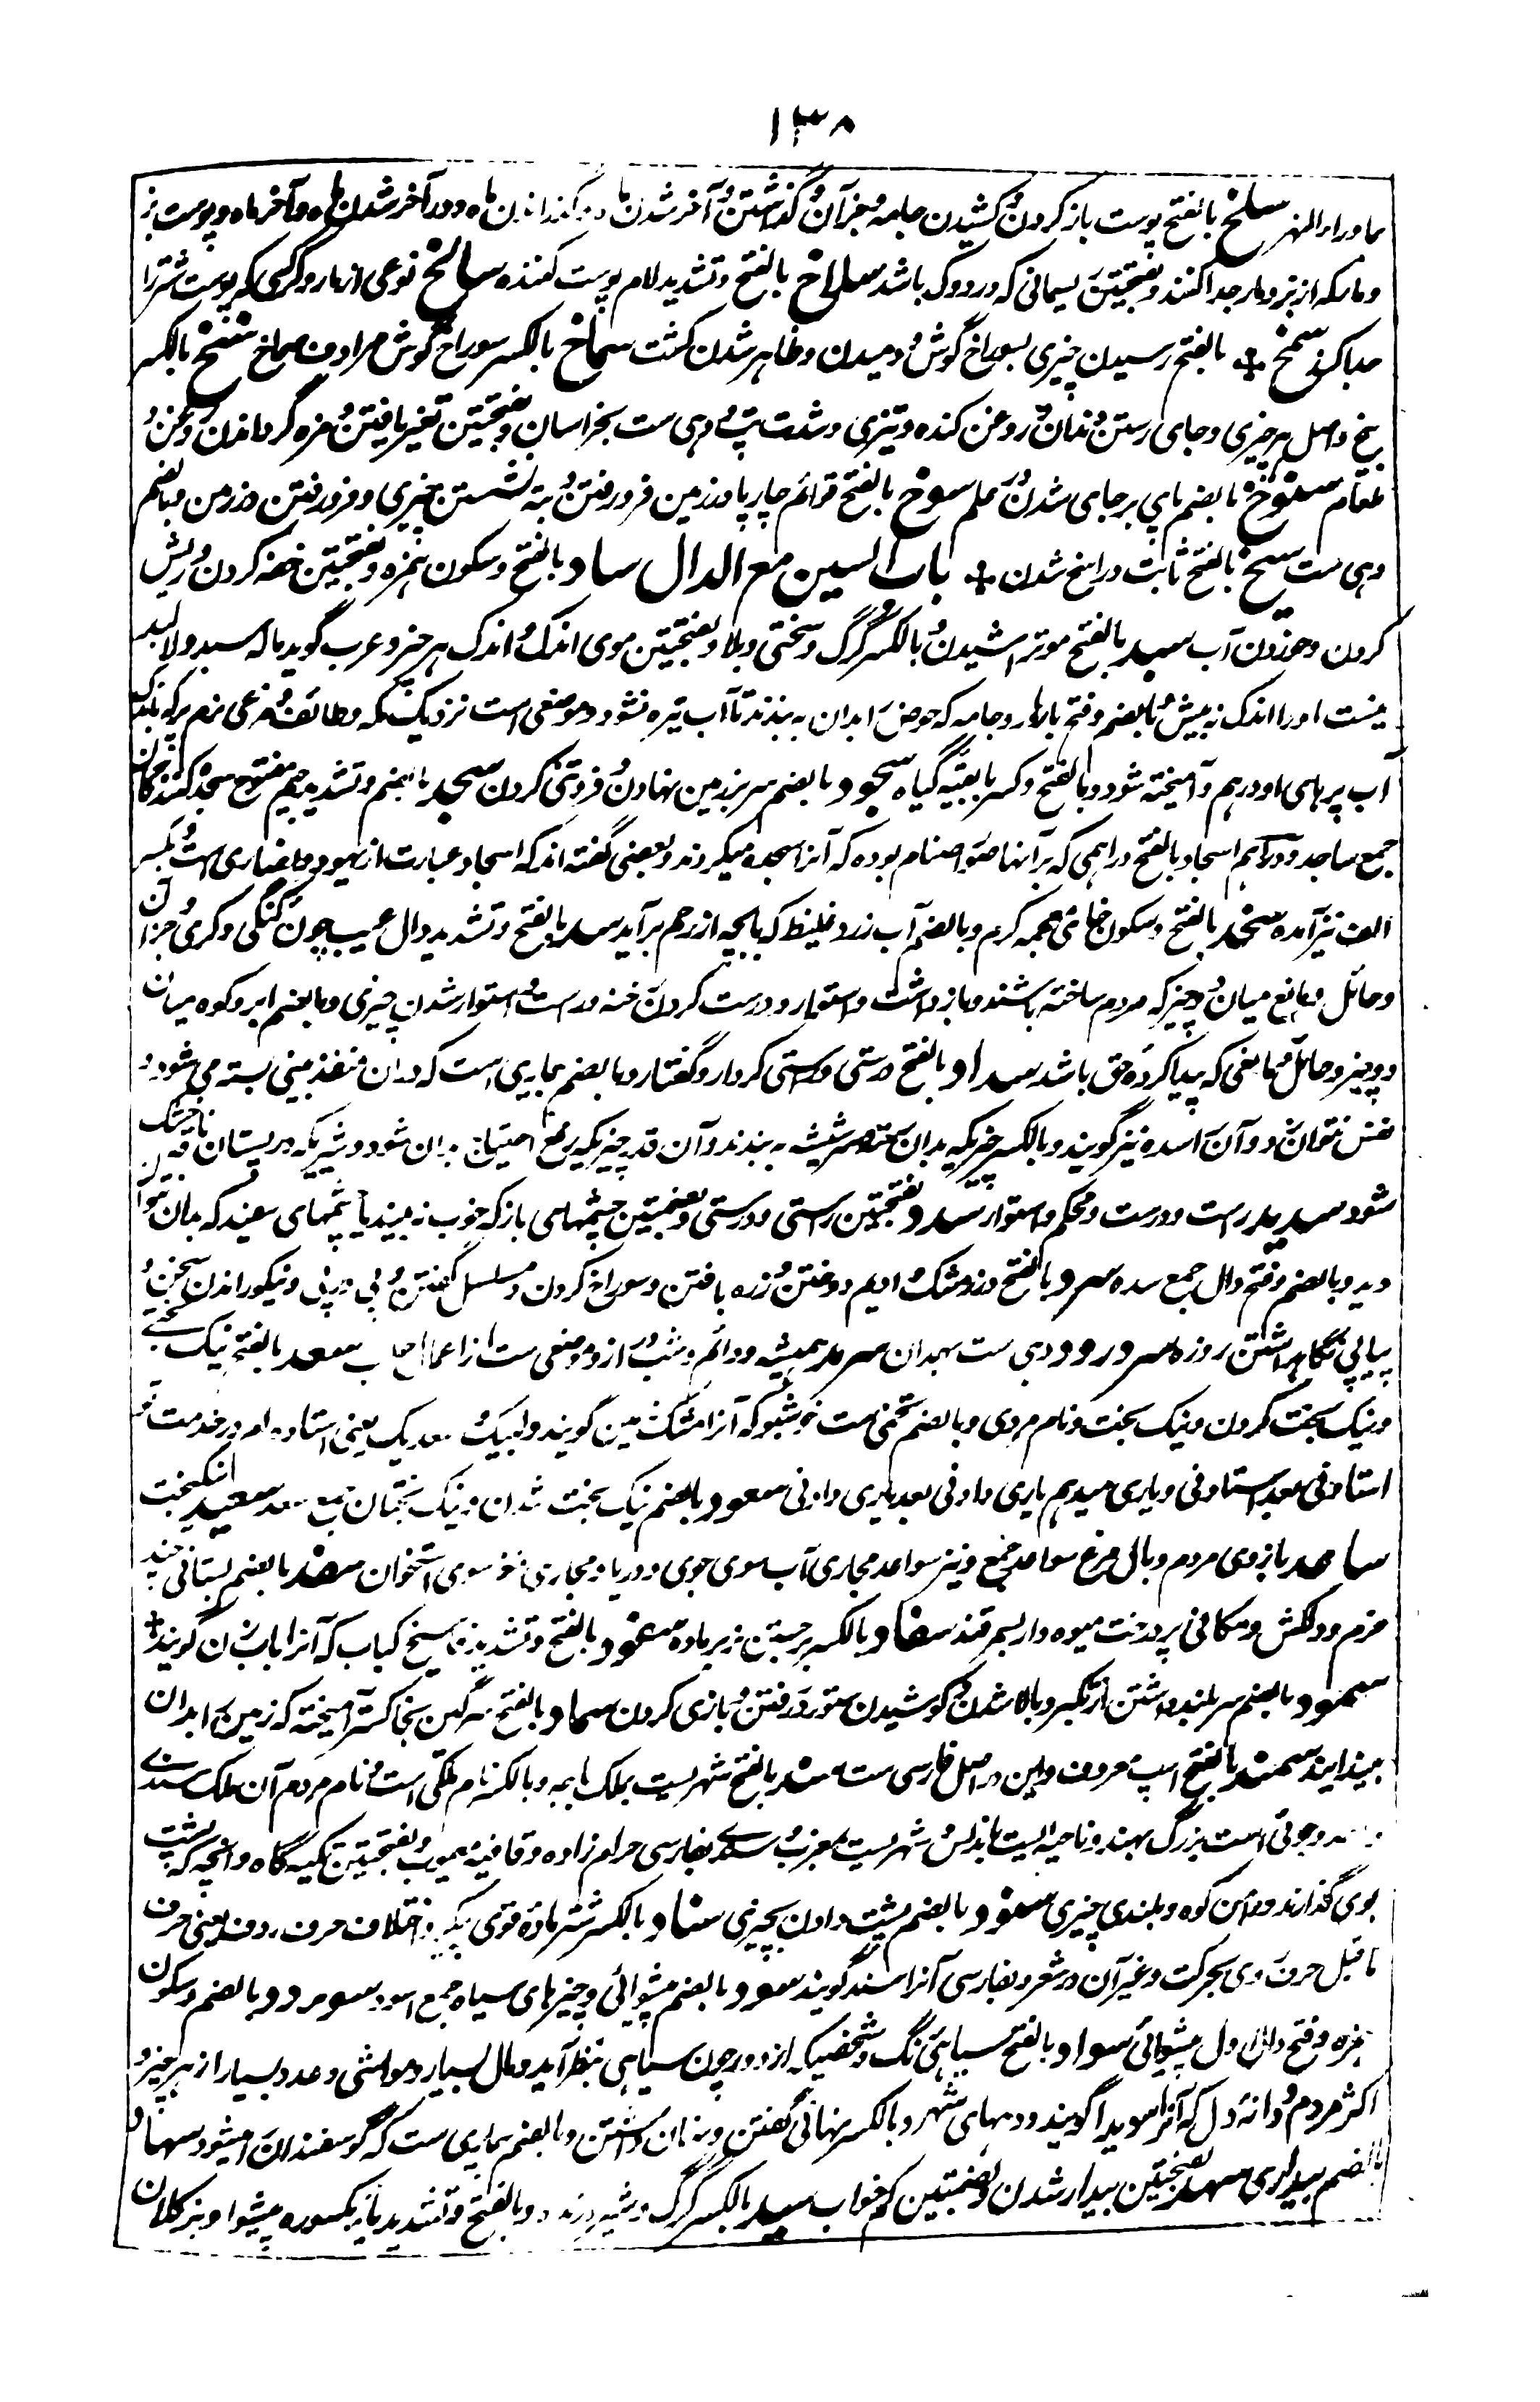 ۱۳۸
ماوراء النهر سلخ بالفتح پوست باز کردن و کشیدن جامه و جز آن و گذاشتن و آخر شدن ماه و گذرانیدن ماه و در آخر شدن ماه و آخر ماه و پوست بز
و مار که از بز و مار جدا کنند و بفتحتین ریسمانی که در دوک باشد سلاخ بالفتح و تشدید لام پوست کننده سالخ نوعی از مار و گری که پوست شتر را
سمخ بالفتح رسیدن چیزی بسوراخ گوش و دمیدن و ظاهر شدن کشت سماخ بالکسر سوراخ گوش مرادف صماخ سنخ بالکسر
بیخ و اصل هر چیزی و جای رستن دندان و روغن کنده و تیزی و شدت تپ و دهی ست بخراسان و بفتحتین تغیر یافتن و مزه گردانیدن روغن و
طعام سنوخ بالضم پای بر جای شدن در علم سوخ بالفتح قوائم چارپا در زمین فرو رفتن و به ته نشستن چیزی و فرو رفتن در زمین و بالضم
دهی ست سیخ بالفتح ثابت و راسخ شدن باب السین مع الدال ساد بالفتح و سکون همزه و بفتحتین خفه کردن و ریش
کردن و خوردن آب سبد بالفتح موتراشیدن و بالکسر گرگ و سختی و بلا و بفتحتین موی اندک و اندک هر چیز و عرب گوید ماله سبد ولا لبد
نیست او را اندک نه بیش و بالضم و فتح با رهار و جامه که حوض را بدان به بندند تا آب تیره نشود و موضعی است نزدیک مکه و طائف و مرغی نرم پر که
آب پرهای او در هم و آمیخته شود و بالفتح و کسر با بقیه گیاه سجود بالضم سر بر زمین نهادن و فروتنی کردن سجد بالضم و تشدید جیم مفتوح سجده کنندگان
جمع ساجد و دراهم اسجاد بالفتح دراهمی که بر آنها صور اصنام بوده که آنرا سجده میکردند و بعضی گفته اند که اسجاد عبارت از یهود و نصاری ست و بکسر
الف نیز آمده سخد بالفتح و سکون خای معجمه گرم و بالضم آب زرد غلیظ که با بچه از رحم بر آید سد بالفتح و تشدید دال عیب چون گنگی و کری و جز آن
و حائل و مانع میان دو چیز که مردم ساخته باشند و بازداشت و استوار و درست کردن رخنه و راست و استوار شدن چیزی و بالضم ابر و کوه میان
دو چیز و حائل و مانعی که پیدا کرده حق باشد سداد بالفتح درستی و راستی کردار و گفتار و بالضم بیماری است که در ان منفذ بینی بسته می شود و
نفس نتوان زد و آن را سده نیز گویند و بالکسر چیزیکه بدان رخنه و سر شیشه به بندند و آن قدر چیزیکه رفع احتیاج بدان شود و شیریکه در پستان ناقه خشک
شود سدید راست و درست و محکم و استوار سدد بفتحتین راستی و درستی و بضمتین چشمهای باز که خوب نه بیند یا چشمهای سفید که بدان نتوان
دید و بالضم و فتح دال جمع سده سرد بالفتح درز مشک و ادیم دوختن و زره بافتن و سوراخ کردن و مسلسل گفتن و پی در پی و نیکو راندن سخن و
پیاپی نگاهداشتن روزه سرد رود دهی ست بهمدان سرمد همیشه و دائم و شب دراز و موضعی ست از اعمال حلب سعد بالفتح نیک بختی
و نیک بخت کردن و نیک بخت و نام مردی و بالضم تخمی ست خوشبو که آنرا مشک زمین گویند و لبیک و سعدیک یعنی استاده ام در خدمت تو
استادنی بعد استادنی و یاری میدهم یاری دادنی بعد یاری دادنی سعود بالضم نیک بخت شدن و نیک بختان جمع سعد سعید نیکبخت
ساعد بازوی مردم و بال مرغ سواعد جمع و نیز سواعد مجاری آب سوی جوی و دریا و مجاری مغز سوی استخوان سغد بالضم بستانی چند
خرم و دلکش و مکانی پر درخت میوه دار بسمرقند سفاد بالکسر برجستن نر بر ماده سفود بالفتح و تشدید فا سیخ کباب که آنرا بابزن گویند
سمود بالضم سر بلند داشتن از تکبر و بالا شدن و کوشیدن ستور در رفتن و بازی کردن سماد بالفتح سرگین بخاکستر آمیخته که زمین را بدان
بیندایند سمند بالفتح اسپ معروف و این در اصل فارسی ست سند بالفتح شهریست بملک باجه و بالکسر نام ملکی است و نام مردم آن ملک سندی
و سند و جوئی است بزرگ بهند و ناحیه ایست باندلس و شهریست بمغرب و سند بفارسی حرام زاده و قافیه معیوب و بفتحتین تکیه گاه و آنچه که پشت
بوی گذارند و دامن کوه و بلندی چیزی سنود بالضم پشت دادن بچیزی سناد بالکسر شتر ماده قوی پیکر و اختلاف حرف ردف یعنی حرف
ماقبل حرف روی بحرکت و غیر آن در شعر و بفارسی آنرا سند گویند سود بالضم پیشوائی و چیزهای سیاه جمع اسود سودد بالضم و سکون
همزه و فتح دال اول پیشوائی سواد بالفتح سیاهی رنگ و شخصیکه از دور چون سیاهی بنظر آید و مال بسیار و مواشی و عدد بسیار از هر چیز و
اکثر مردم و دانه دل که آنرا سویدا گویند و دیهای شهر و بالکسر نهانی گفتن و پنهان داشتن و بالضم بیماری ست که گوسفندان را میشود سهاد
بالضم بیداری سهد بفتحتین بیدار شدن و بضمتین کم خواب سید بالکسر گرگ و شیر درنده و بالفتح و تشدید یای مکسوره پیشوا و بز کلان